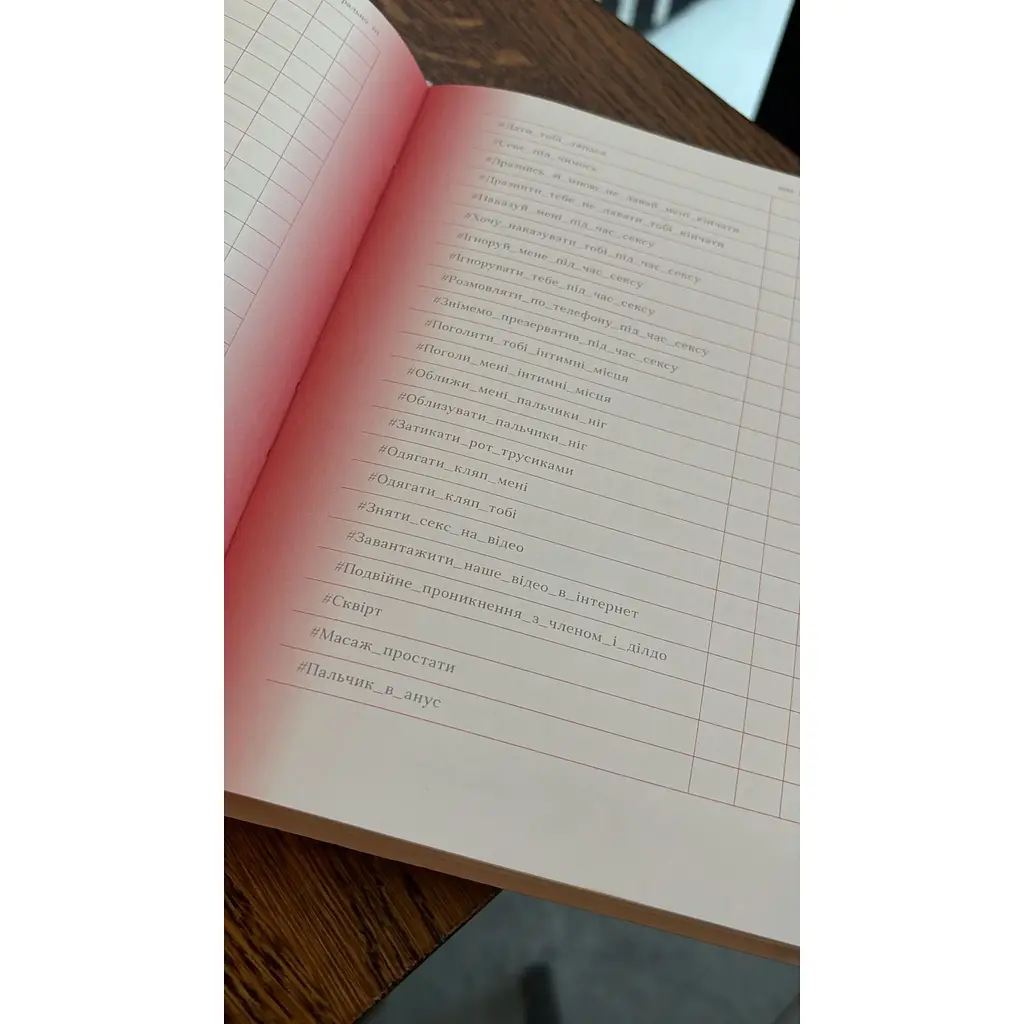 #Дати_тобі_ляпаса
#Секс_під_чимось
#Дразнись_зі_мною_не_давай_мені_кінчати
#Дразнити_тебе_не_давати_тобі_кінчати
#Наказуй_мені_під_час_сексу
#Хочу_наказувати_тобі_під_час_сексу
#Ігноруй_мене_під_час_сексу
#Ігнорувати_тебе_під_час_сексу
#Розмовляти_по_телефону_під_час_сексу
#Знімемо_презерватив_під_час_сексу
#Поголити_тобі_інтимні_місця
#Поголи_мені_інтимні_місця
#Оближи_мені_пальчики_ніг
#Облизувати_пальчики_ніг
#Затикати_рот_трусиками
#Одягати_кляп_мені
#Одягати_кляп_тобі
#Зняти_секс_на_відео
#Завантажити_наше_відео_в_інтернет
#Подвійне_проникнення_з_членом_і_ділдо
#Сквірт
#Масаж_простати
#Пальчик_в_анус